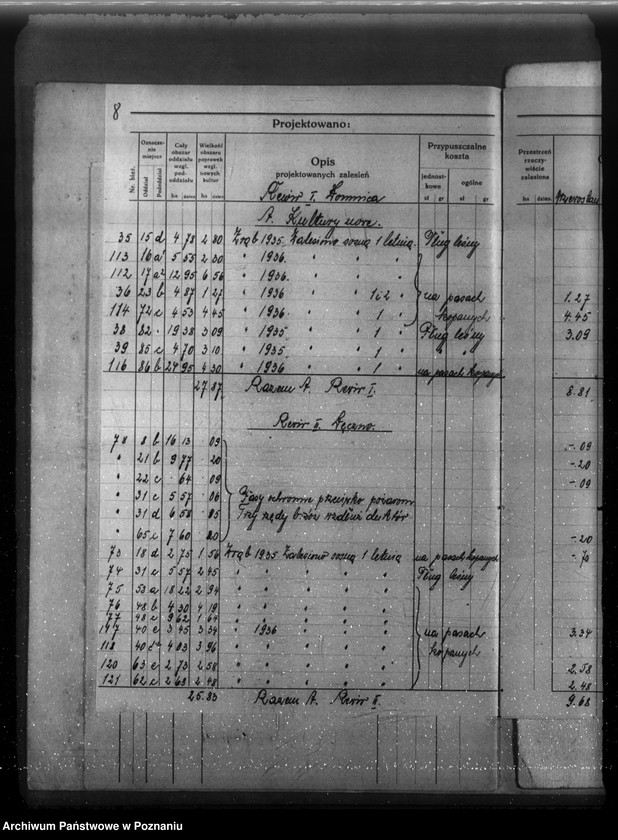 8
Projektowano:
Nr. bież.
Oznaczenie miejsc
Oddział
Pododdział
Cały obszar oddziału wzgl. pododdziału
ha
Wielkość obszaru poprawek wzgl. nowych kultur
ha
Opis
projektowanych zalesień
Przypuszczalne koszta
jednostkowe
ogólne
zł gr zł gr
Przestrzeń rzeczywiście zalesiona
ha
Rewir I. Łomnica
A. Kultury nowe.
35 15 d 4 78 2 80 Zrąb 1935 Zalesiono sosną 1 letnią. Pług leśny
113 16 a¹ 5 55 2 30 " 1936. " " "
112 17 a² 12 95 6 56 " 1936. " " "
36 23 b 4 87 1 27 " 1936 " " 1 i 2 " na pasach 1.27
114 72 c 4 53 4 45 " 1936. " " 1 " kopanych 4.45
38 82 . 19 38 3 09 " 1935 " " 1 " Pług leśny 3.09
39 85 c 4 70 3 10 " 1935. " " 1 " " "
116 86 b 24 95 4 30 " 1936 " " 1 " na pasach kopanych
27 87 Razem A. Rewir I. 8.81
Rewir II. Łęczno.
78 8 b 16 13 09 -.09
" 21 b 9 77 20 -.20
" 22 c . 64 09 -.09
" 31 c 5 57 06 Pasy ochronne przeciwko pożarom
" 31 d 6 58 85 Trzy rzędy brzóz wzdłuż
" 65 c 7 60 20 -.20
73 18 d 2 75 1 56 Zrąb 1935 Zalesiono sosną 1 letnią na pasach kopanych
74 31 c 5 57 2 45 " " " " " Pług leśny
75 53 a 18 22 2 94 " " " " "
76 48 b 4 30 4 19 " " " " "
77 48 c 9 62 1 64 " " " " "
117 40 c 3 45 3 34 " 1936 " " " na pasach 3.34
118 40 4 03 3 96 " " " " " kopanych
120 63 c 2 73 2 58 " " " " " 2.58
121 62 c 2 63 2 48 " " " " " 2.48
25.83 Razem A. Rewir II. 9.68
Archiwum Państwowe w Poznaniu